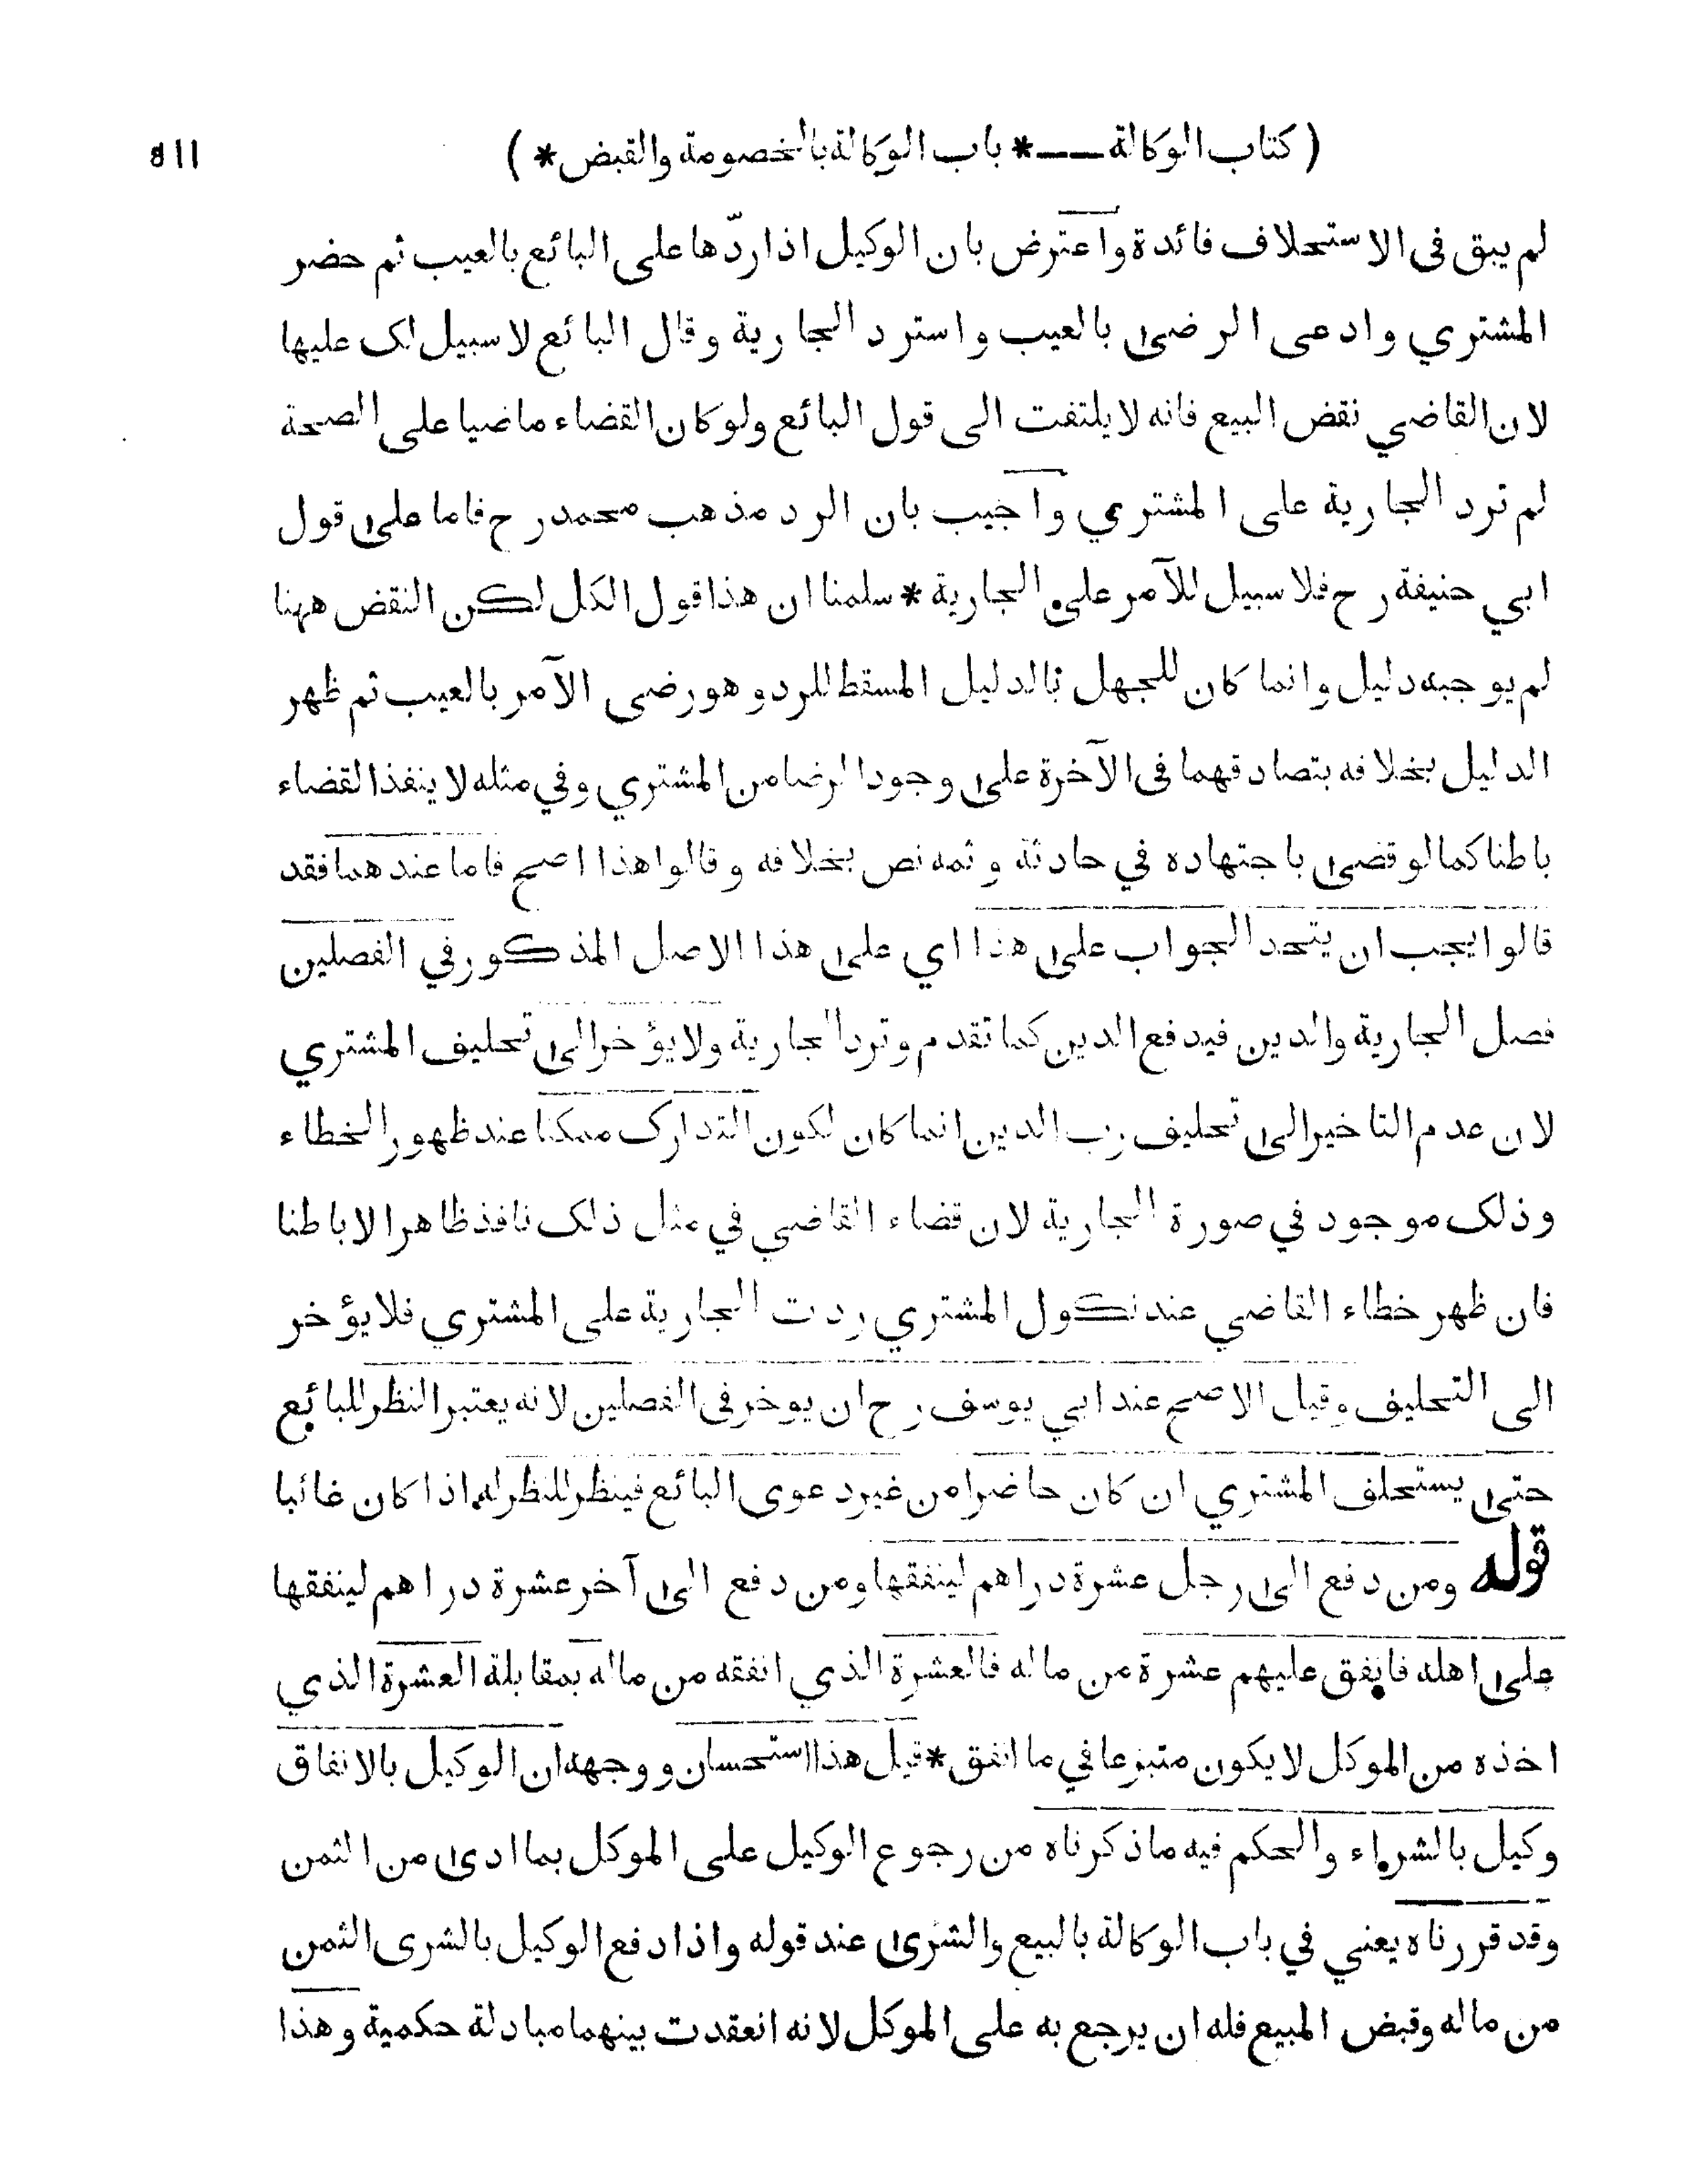 ( كتاب الوكالة — * باب الوكالة بالخصومة والقبض * ) ٥١١
لم يبق فى الاستحلاف فائدة واعترض بان الوكيل اذا ردّها على البائع بالعيب ثم حضر
المشتري وادعى الرضى بالعيب واسترد الجارية وقال البائع لا سبيل لك عليها
لان القاضي نقض البيع فانه لا يلتفت الى قول البائع ولو كان القضاء ماضيا على الصحة
لم ترد الجارية على المشتري واجيب بان الرد مذهب محمد رح فاما على قول
ابي حنيفة رح فلا سبيل للآمر على الجارية * سلمنا ان هذا قول الكل لكن النقض ههنا
لم يوجبه دليل وانما كان للجهل بالدليل المسقط للرد وهو رضى الآمر بالعيب ثم ظهر
الدليل بخلافه بتصادقهما فى الآخرة على وجود الرضا من المشتري وفي مثله لا ينفذ القضاء
باطنا كما لو قضى باجتهاده في حادثة وثمه نص بخلافه وقالوا هذا اصح فاما عندهما فقد
قالوا يجب ان يتحد الجواب على هذا اي على هذا الاصل المذكور في الفصلين
فصل الجارية والدين فيدفع الدين كما تقدم وترد الجارية ولا يؤخر الى تحليف المشتري
لان عدم التاخير الى تحليف رب الدين انما كان لكون التدارك ممكنا عند ظهور الخطاء
وذلك موجود في صورة الجارية لان قضاء القاضي في مثل ذلك نافذ ظاهرا لا باطنا
فان ظهر خطاء القاضي عند نكول المشتري ردت الجارية على المشتري فلا يؤخر
الى التحليف وقيل الاصح عند ابي يوسف رح ان يوخر فى الفصلين لانه يعتبر النظر للبائع
حتى يستحلف المشتري ان كان حاضرا من غير دعوى البائع فينظر للنظر له اذا كان غائبا
قوله ومن دفع الى رجل عشرة دراهم لينفقها ومن دفع الى آخر عشرة دراهم لينفقها
على اهله فانفق عليهم عشرة من ماله فالعشرة الذي انفقه من ماله بمقابلة العشرة الذي
اخذه من الموكل لا يكون متبرعا في ما انفق * قيل هذا استحسان ووجهه ان الوكيل بالانفاق
وكيل بالشراء والحكم فيه ما ذكرناه من رجوع الوكيل على الموكل بما ادى من الثمن
وقد قررناه يعني في باب الوكالة بالبيع والشرى عند قوله واذا دفع الوكيل بالشرى الثمن
من ماله وقبض المبيع فله ان يرجع به على الموكل لانه انعقدت بينهما مبادلة حكمية وهذا